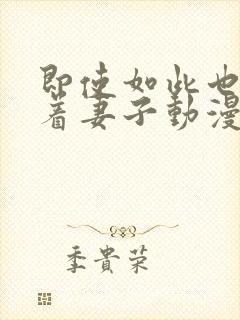 即使如此也
着妻子動漫
季貴荣